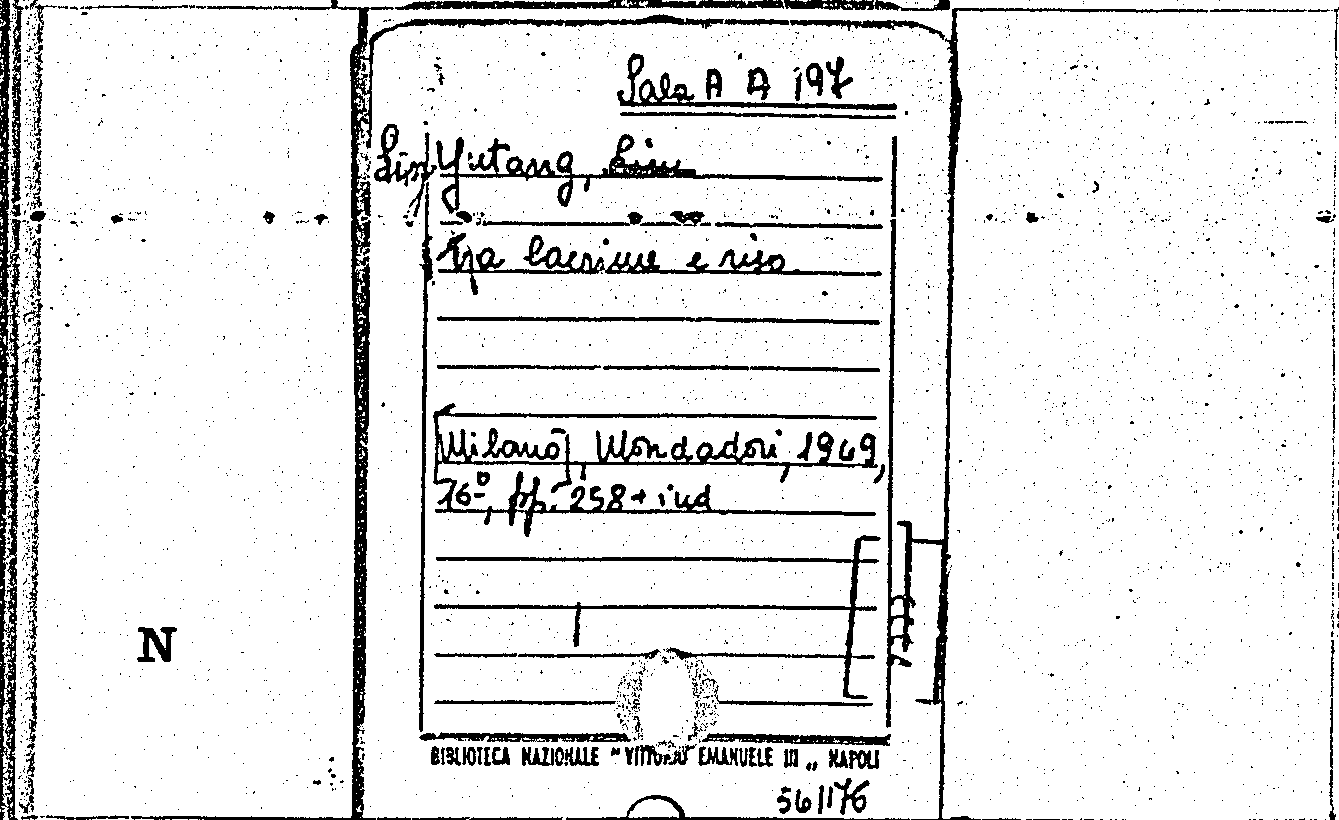 Sala A A 197
Lin Yutang,
Tra lacrime e riso
Milano, Mondadori, 1949,
16º, pp. 258 + ind
N
BIBLIOTECA NAZIONALE "VITTORIO EMANUELE III„ NAPOLI
56/176